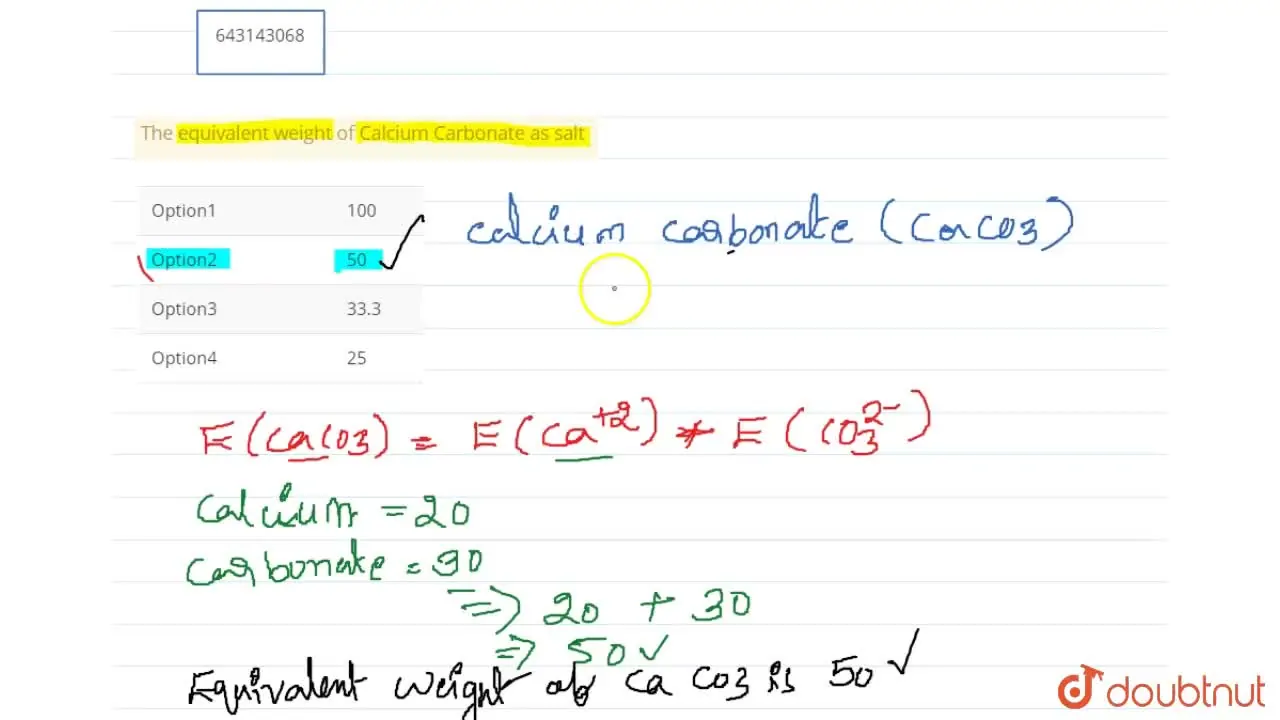 643143068
The equivalent weight of Calcium Carbonate as salt
Option1 100
Option2 50
Option3 33.3
Option4 25
calcium carbonate (CaCO3)
E (CaCO3) = E (Ca+2) + E (CO3 2-)
Calcium = 20
Carbonate = 30
=> 20 + 30
=> 50 ✓
Equivalent weight of Ca CO3 is 50 ✓
doubtnut